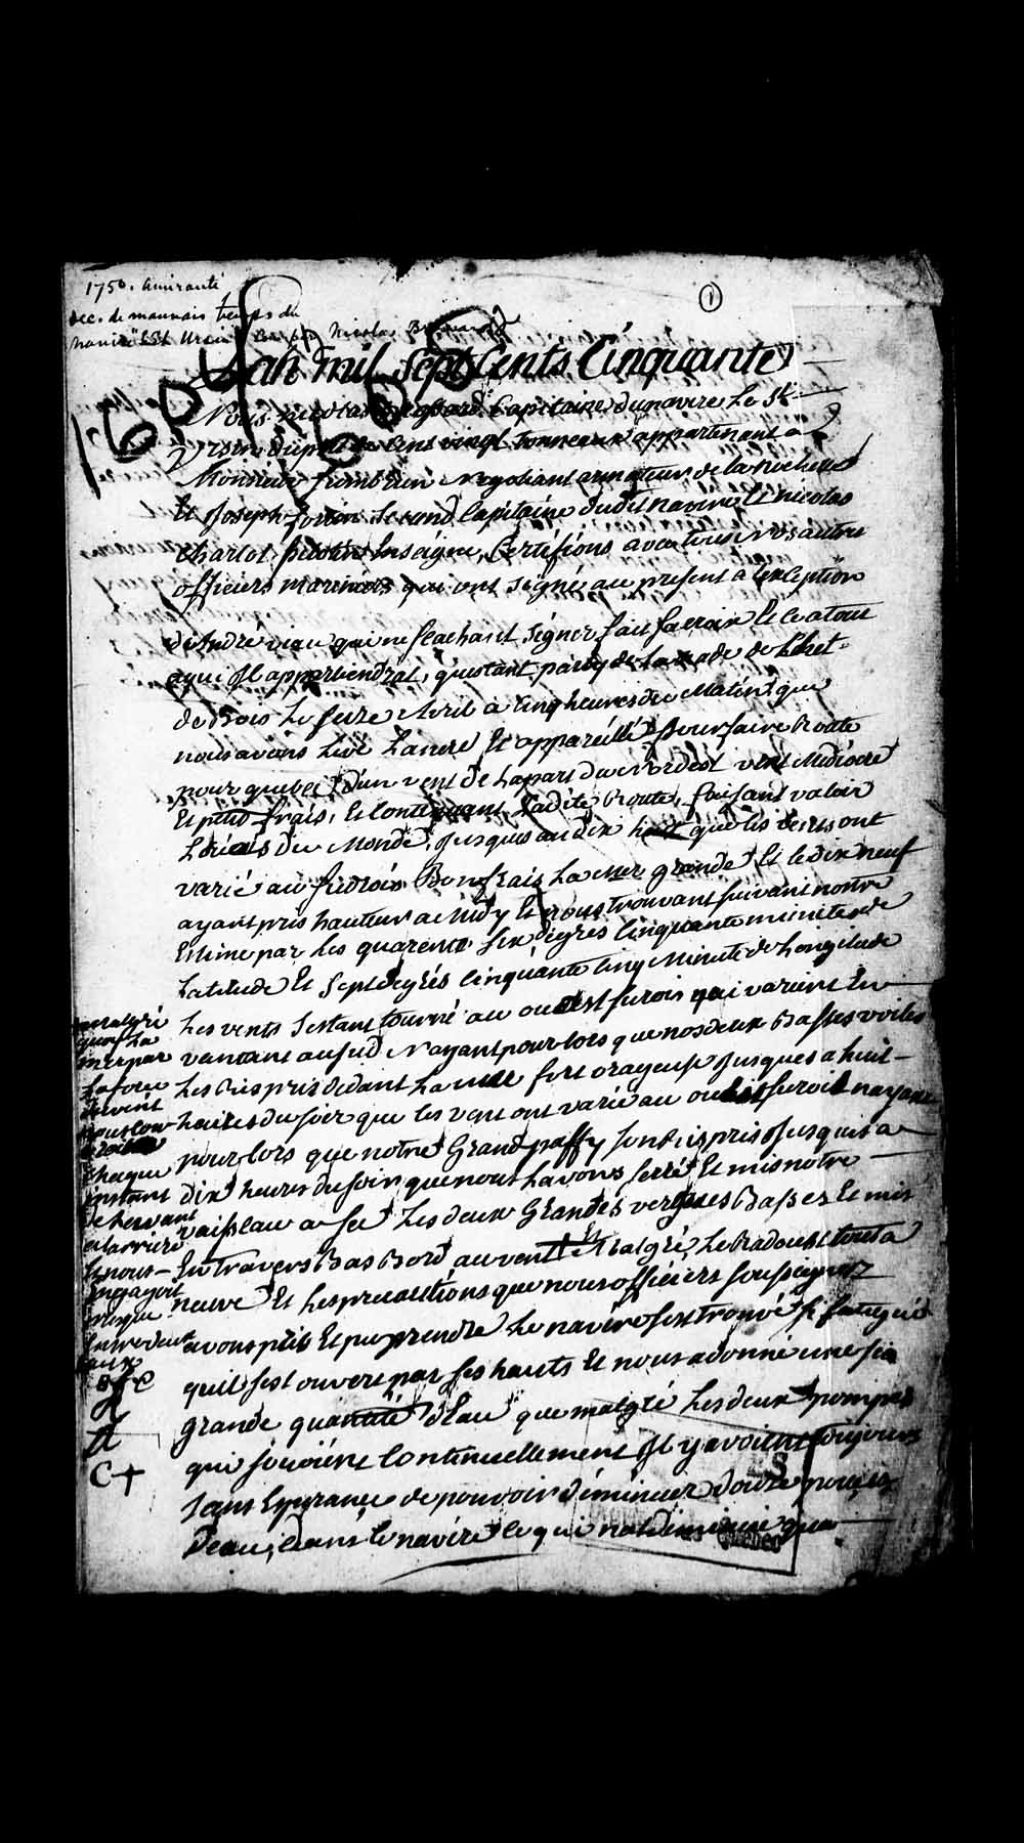 1750. Amirauté
dec. de mauvais temps du
navire "Le St Ursin" Nicolas
①
Lan mil Sept Cents Cinquante
Nous nicolas Capitaine du navire Le St
Ursin du port de Cent vingt tonneaux appartenant a
Monsieur negotiant armateur de la Rochelle
Et Joseph fortin Second Capitaine dudit navire Et nicolas
Charlot Enseigne, Certifions avec tous Nos autres
officiers mariniers qui ont signé au present a Lexception
de André qui ne scachant signer fait sa croix Et ce a tous
a qui Il appartiendrat, questant party de la rade de Chef
de Bois Le seize Avril a cinq heures du Matin que
nous avons Levé Lancre Et appareillé pour faire Route
pour quebec d'un vent de la part du Nordest vent Mediocre
Et petit frais, Et Continuant Ladite Route, faisant valoir
du Monde, Jusques au dix huit que les vents ont
varié au Bon frais La Mer grande Et le dix neuf
ayant pris hauteur a Midy Et nous trouvant suivant nostre
Estime par Les quarente six degres Cinquante minutes de
Latitude Et Sept degrés Cinquante Cinq Minute de Longitude
Les vents sestant tourné au ouest surois qui varient En
venant au sud Nayant pour lors que nos deux Basses voiles
Les Ris pris dedant La mer fort orageuse Jusques a huit
heures du soir que les vent ont varié au ouest surois nayant
pour lors que notre Grand paffy Ris pris Jusquis a
Dix heures du soir que nous Lavons serré Et mis notre
vaisseau a sec Les deux Grandes vergues Basses Et mis
En travers Bas Bord au vent Et Malgré Le Radoubt tout a
neuve Et Les precautions que nous officiers soussignez
avons pris Et pu prendre Le navire sest trouvé si fatigué
quil sest ouvert par ses hauts Et nous a donné une sia
grande quantité d'Eau que malgré Les deux pompes
qui Continuellement Il y avoient toujours
sans Esperance de pouvoir diminuer douze pouces
Deau, dans le navire ce qui na Diminué qua
malgré
quoy La
mer par
La force
du vent
nous
chaque
instant
de Lavant
a Larriere
Et nous
Engageoit
presque
Entre deux
Eaux
C+
Québec